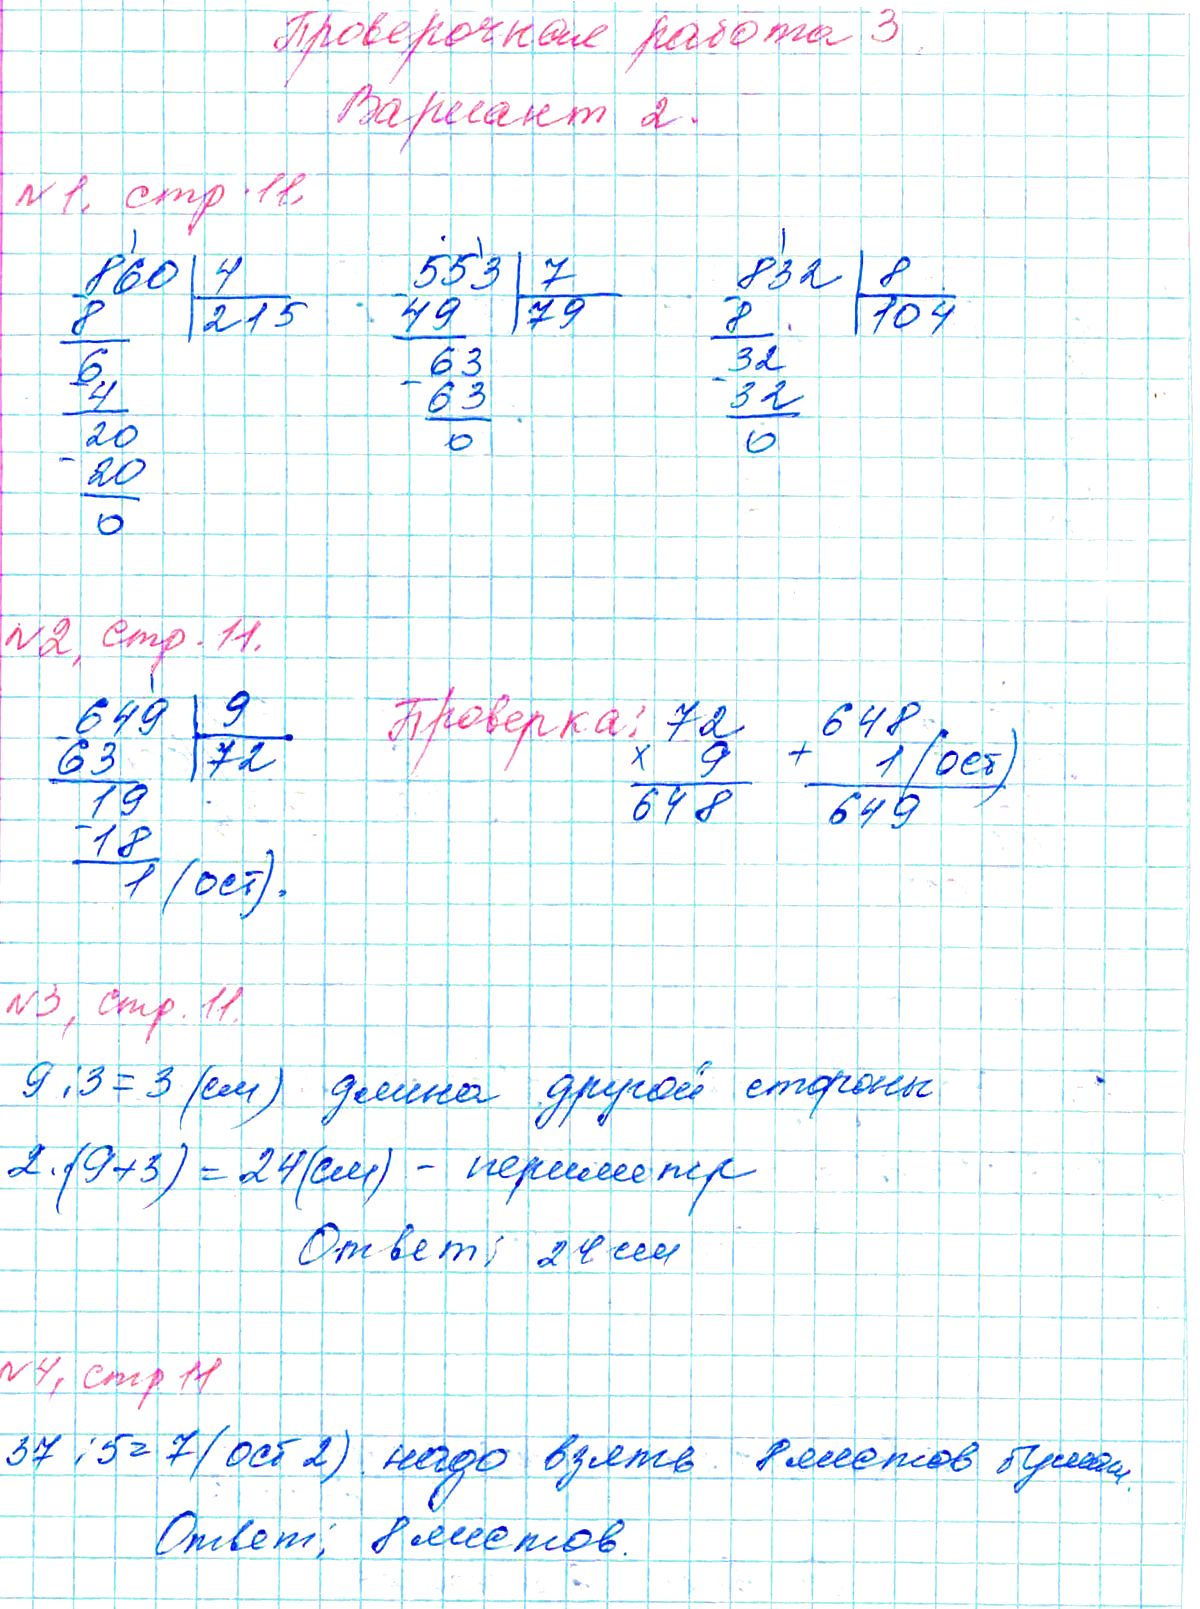 Проверочная работа 3.
Вариант 2.
№1, стр. 11.
860 | 4 553 | 7 832 | 8
8 | 215 49 | 79 8 | 104
6 63 32
- 4 - 63 - 32
20 0 0
- 20
0
№2, стр. 11.
649 | 9 Проверка: 72 648
63 | 72 x 9 + 1 (ост)
19 648 649
- 18
1 (ост).
№3, стр. 11.
9 : 3 = 3 (см) длина другой стороны
2 · (9+3) = 24 (см) - периметр
Ответ: 24 см
№4, стр 11
37 : 5 = 7 (ост 2) надо взять 8 листов бумаги.
Ответ: 8 листов.